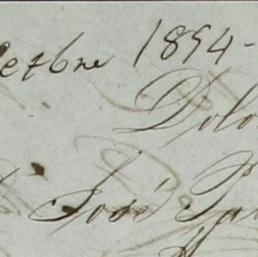 etbre 1854-
Dolo
José Pa